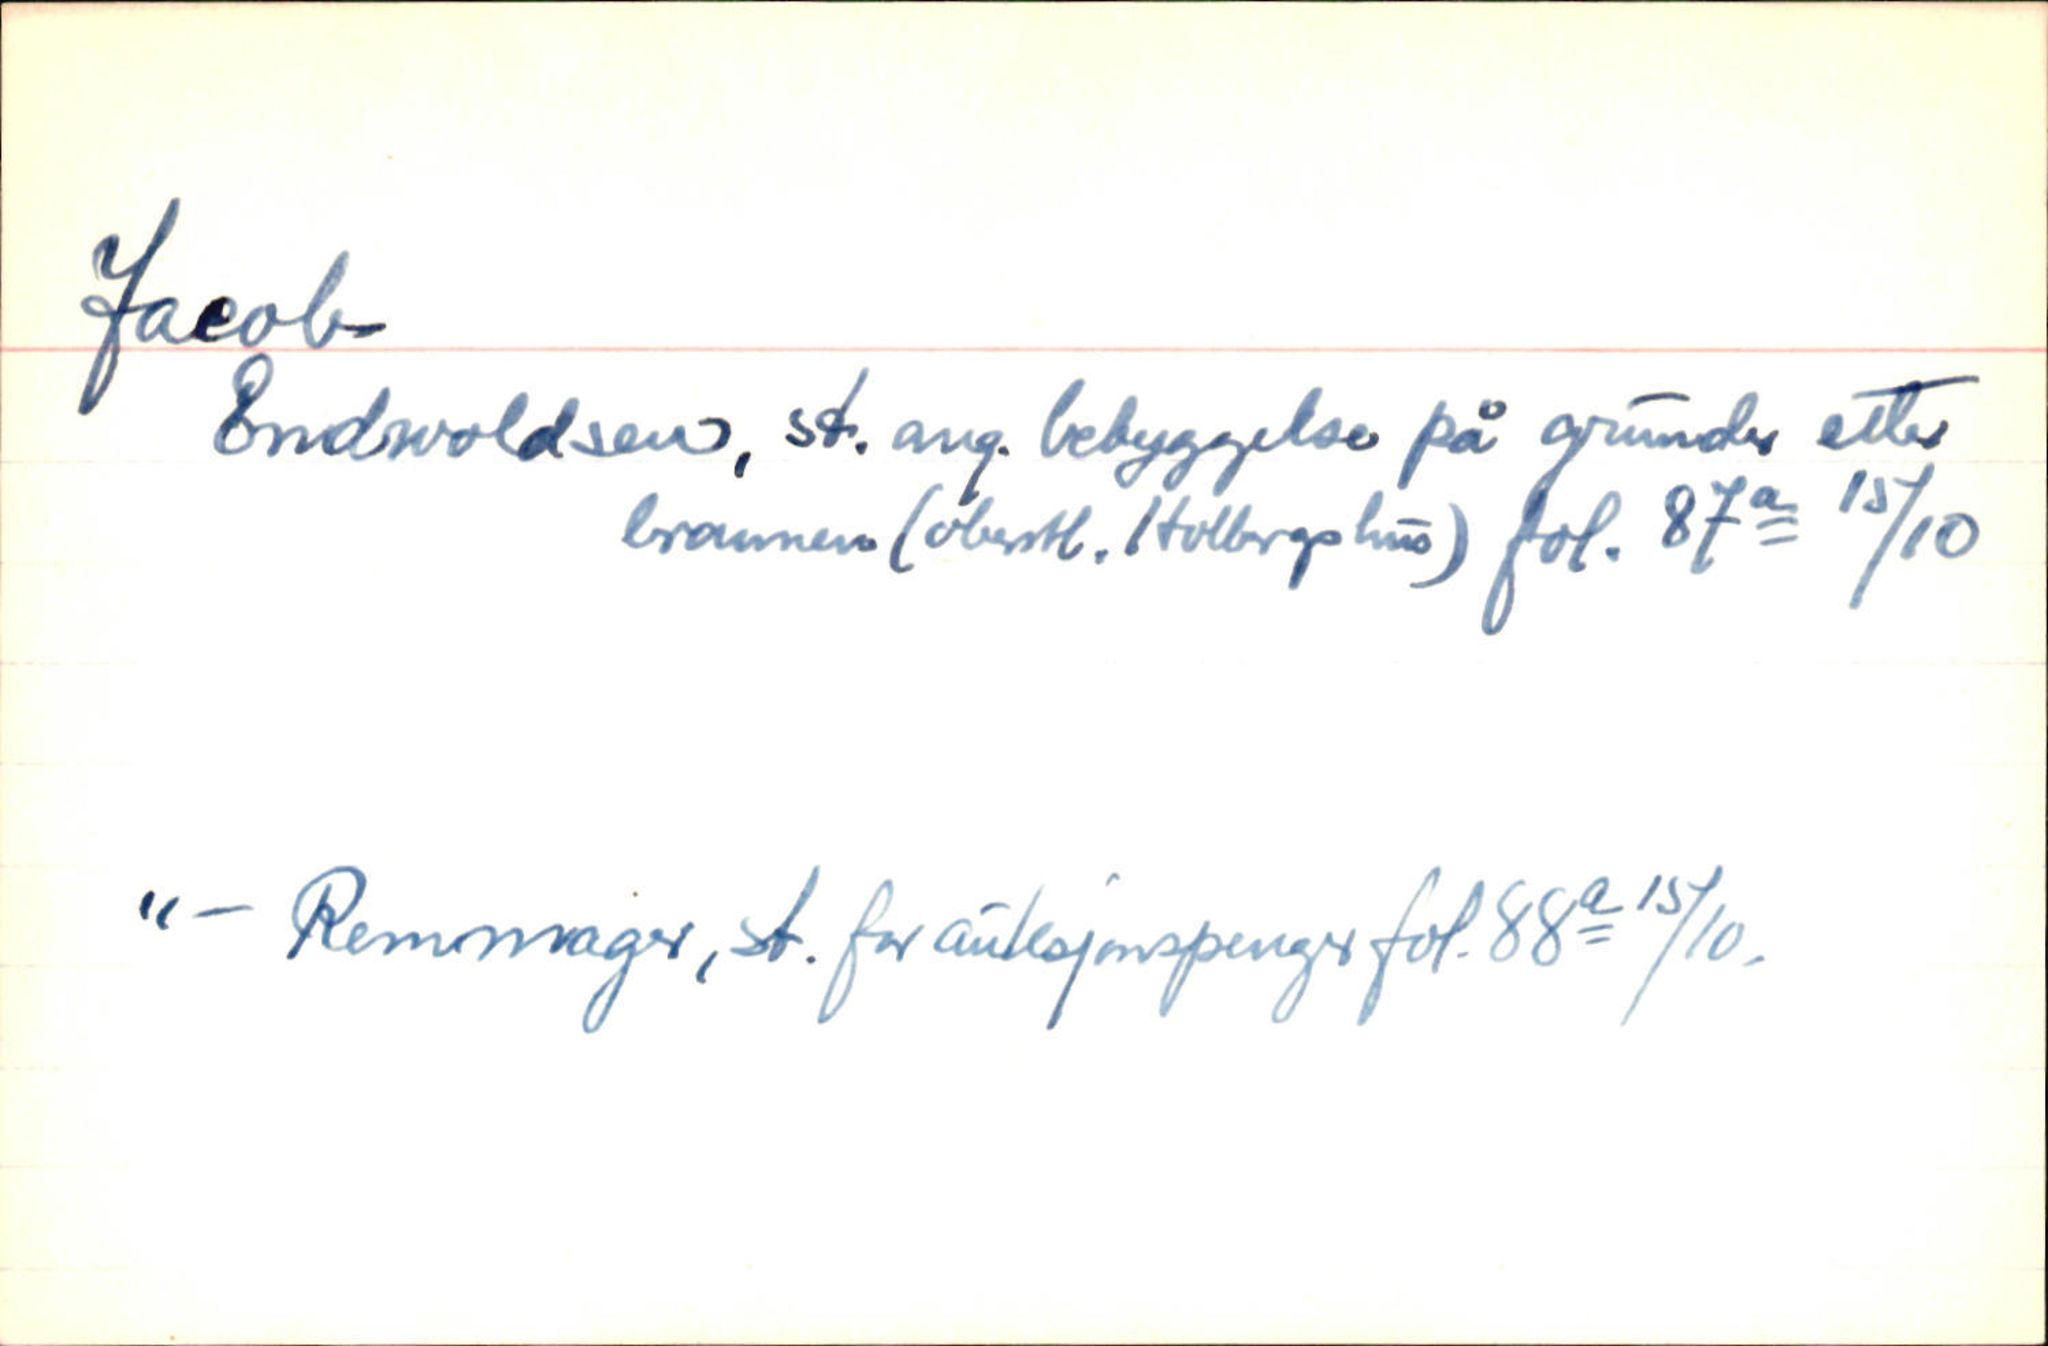 Jacob
Endwoldsen, st. ang. bebyggelse på grunder etter
brannen (oberstl. Holbergs hus) fol. 87a 15/10
"— Remmager, st. for auksjonspenger fol. 88a 15/10.